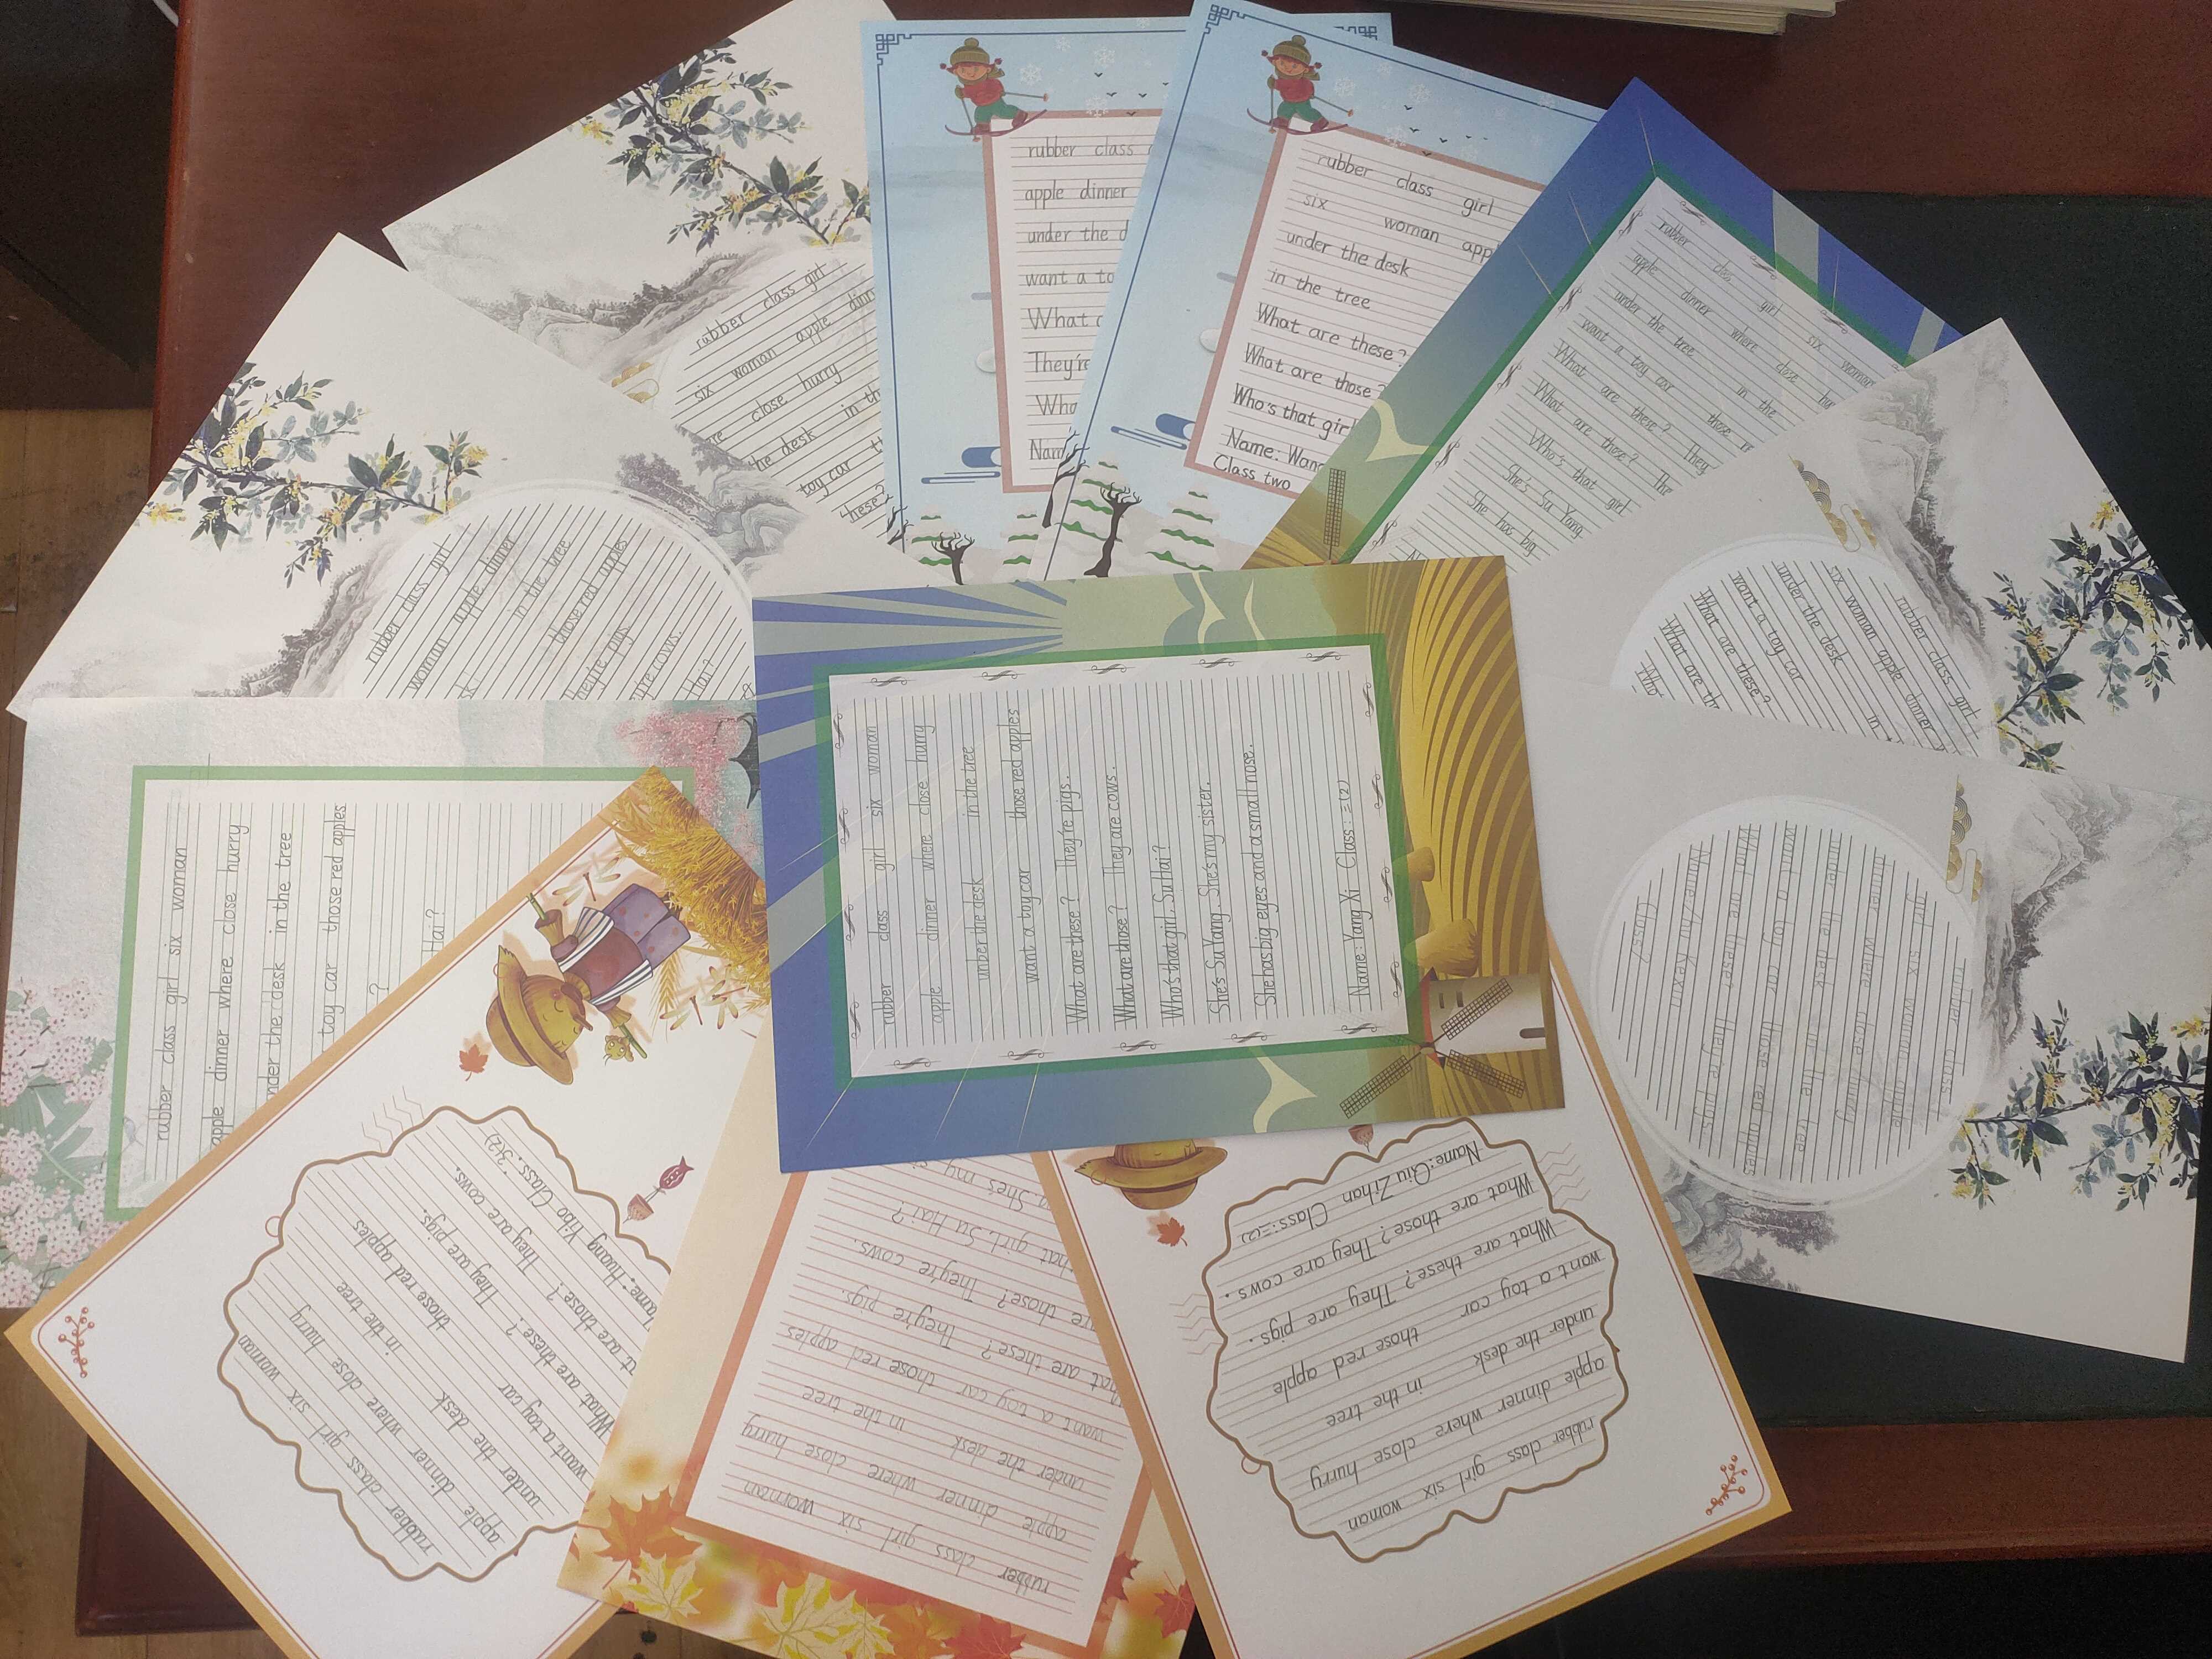 rubber class girl
six woman apple dinn
re close hurry
the desk in th
toy car
these?
rubber class
apple dinner
under the d
want a to
What
They're
Wha
Nam
rubber class girl
six woman app
under the desk
in the tree
What are these?
What are those?
Who's that girl
Name: Wang
Class two
rubber class girl six woman
apple dinner where close hu
under the tree in the
want a toy car those
What are these? They
What are those? The
Who's that girl
She's Su Yang
She has big
rubber class girl
woman apple dinner
in the tree
those red apples
They're pigs
cows.
Hai?
rubber class girl
six woman apple dinner
under the desk in
want a toy car
What are these?
What are th
Who
rubber class girl six woman
apple dinner where close hurry
under the desk in the tree
toy car those red apples
?
Hai?
rubber class girl six woman
apple dinner where close hurry
under the desk in the tree
want a toy car those red apples
What are these? They're pigs.
What are those? They are cows.
Who's that girl, Su Hai?
She's Su Yang. She's my sister.
She has big eyes and a small nose.
Name: Yang Xi Class: 三(2)
rubber class
girl six woman apple
dinner where close hurry
under the desk in the tree
want a toy car those red apples
What are these? They're pigs
Class2
rubber class girl six woman
apple dinner where close hurry
under the desk in the tree
want a toy car those red apples
What are these? They are pigs.
at are those? They are cows.
Name: Huang Yibo Class: 3(2)
rubber class girl six woman
apple dinner where close hurry
under the desk in the tree
want a toy car those red apples
hat are these? They're pigs.
are those? They're cows.
that girl, Su Hai?
She's my
rubber class girl six woman
apple dinner where close hurry
under the desk in the tree
want a toy car those red apple
What are these? They are pigs.
What are those? They are cows.
Name: Qiu Zihan Class: 三(2)